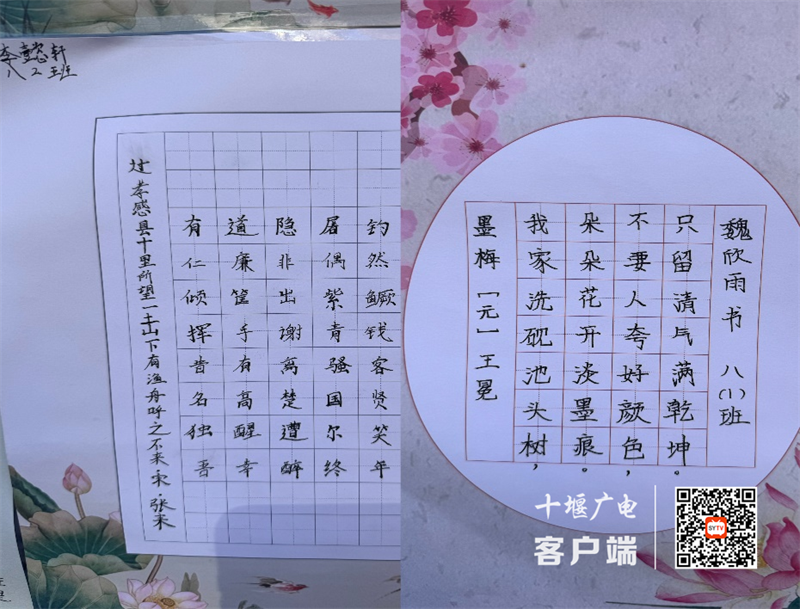 李懿轩
八2班
过孝感县十里所望一土山下有渔舟呼之不来 宋·张耒
有道隐屠钓
仁廉非偶然
倾筐出紫鳜
挥手谢青钱
昔有离骚客
名高楚国贤
独醒遭尔笑
吾幸醉终年
墨梅 [元] 王冕
我家洗砚池头树，
朵朵花开淡墨痕。
不要人夸好颜色，
只留清气满乾坤。
魏欣雨书 八(1)班
十堰广电
客户端
SYTV